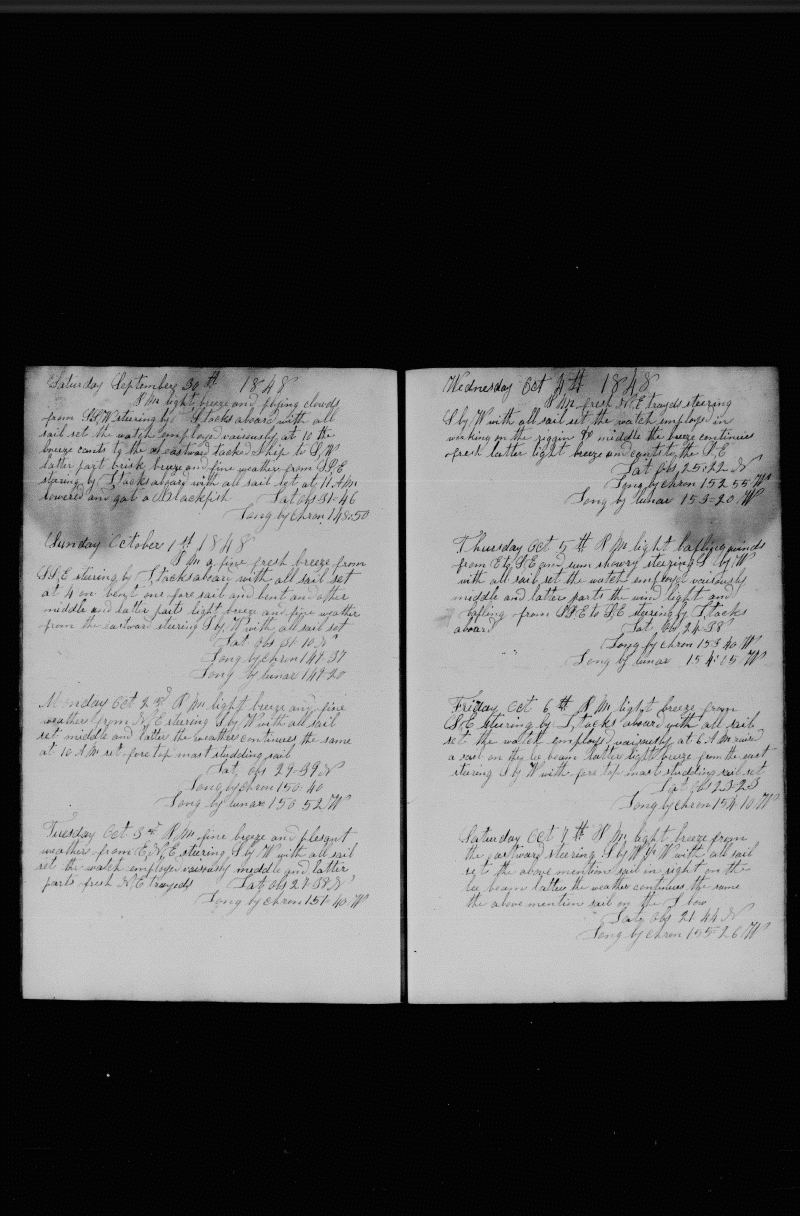 Saturday September 30th 1848
P M light breeze and flying clouds
from SSW stearing by S tacks aboard with all
sail set the watch employd variously at 10 the
breeze cants to the eastward tacked ship to SW
latter part brisk breeze and fine weather from SSE
stearing by S tacks aboard with all sail set at 11 A M
lowered and got a Blackfish Lat Obs 31-46
Long by Chron 148:50
Sunday October 1st 1848
P M a fine fresh breeze from
SSE stearing by S tacks aboard with all sail set
at 4 on bent one fore sail and bent an other
middle and latter parts light breeze and fine weather
from the eastward steering S by W with all sail set
Lat Obs 31-10 N
Long by Chron 149-37
Long by lunar 149-20
Monday Oct 2nd P M light breeze and fine
weather from N E steering S by W with all sail
set middle and latter the weather continues the same
at 10 A M set fore top mast studding sail
Lat, Obs 29-39 N
Long by Chron 150-40
Long by lunar 150 52 W
Tuesday Oct 3rd P M fine breeze and plesant
weather from E N E steering S by W with all sail
set the watch employe variously middle and latter
parts fresh N E trayeds Lat Obs 27-38 N
Long by Chron 151-40 W
Wednesday Oct 4th 1848
P M fresh N E trayds steering
S by W with all sail set the watch employe in
working on the riggin middle the breeze continues
fresh latter light breeze and cants to the S E
Lat Obs 25:22 N
Long by Chron 152 55 W
Long by lunar 153-20 W
Thursday Oct 5th P M light bafling winds
from E to S E and sum showry steering S by W
with all sail set the watch employe variously
middle and latter parts the wind light and
bafling from S S E to S E stering by S tacks
aboard Lat Obs 24-38
Long by Chron 153 40 W
Long by lunar 154:05 W
Friday Oct 6th P M light breeze from
S E steering by S tacks aboard with all sail
set the watch employed variously at 6 A M raised
a sail on the lee beam latter light breeze from the east
steering S by W with fore top mast studding sail set
Lat Obs 23-23
Long by Chron 154-10 W
Saturday Oct 7th P M light breeze from
the eastward steering S by W W with all sail
set the above mention sail in sight on the
lee beam latter the weather continues the same
the above mention sail on the S bow
Lat Obs 21 44 N
Long by Chron 155-26 W